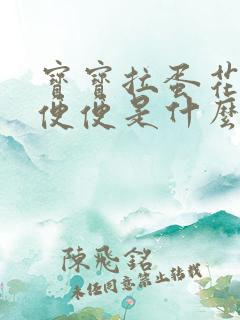 寶寶拉蛋花
便便是什麼
陳飛銘
未經同意禁止轉載